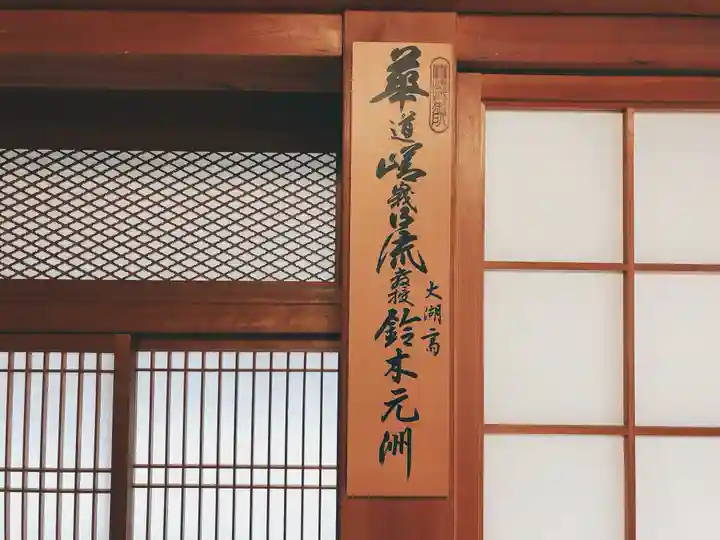 華道嵯峨御流教授鈴木元洲
大湖高